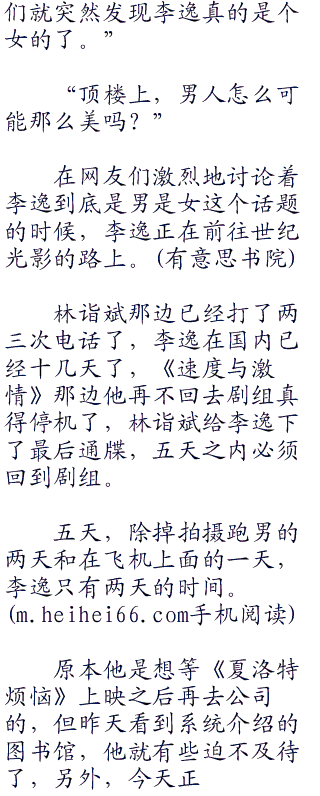 们就突然发现李逸真的是个
女的了。”
“顶楼上，男人怎么可
能那么美吗？”
在网友们激烈地讨论着
李逸到底是男是女这个话题
的时候，李逸正在前往世纪
光影的路上。(有意思书院)
林诣斌那边已经打了两
三次电话了，李逸在国内已
经十几天了，《速度与激
情》那边他再不回去剧组真
得停机了，林诣斌给李逸下
了最后通牒，五天之内必须
回到剧组。
五天，除掉拍摄跑男的
两天和在飞机上面的一天，
李逸只有两天的时间。
(m.heihei66.com手机阅读)
原本他是想等《夏洛特
烦恼》上映之后再去公司
的，但昨天看到系统介绍的
图书馆，他就有些迫不及待
了，另外，今天正